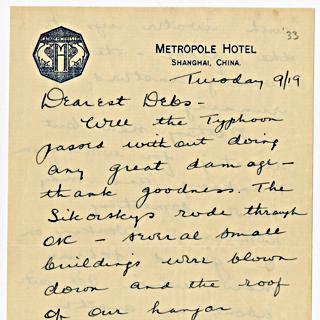 '33
METROPOLE HOTEL
SHANGHAI, CHINA.
Tuesday 9/19
Dearest Debs -
Well the Typhoon
passed without doing
any great damage -
thank goodness. The
Sikorskys rode through
OK - several small
buildings were blown
down and the roof
of our hangar